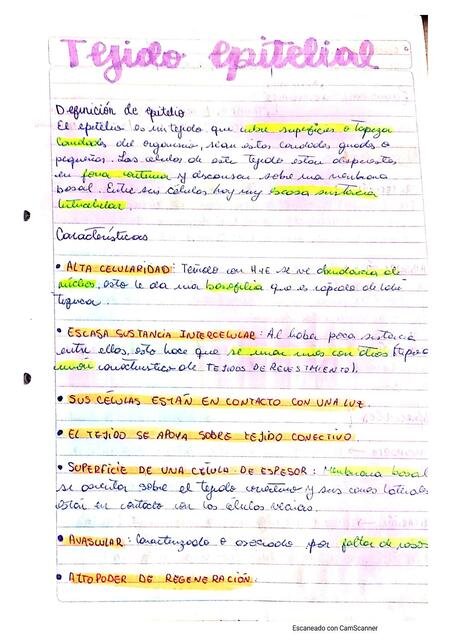 Tejido epitelial
Definición de epitelio
El epitelio es un tejido que cubre superficies o tapiza
cavidades del organismo, sean estas cavidades grandes o
pequeñas. Las células de este tejido están dispuestas
en forma continua y descansan sobre una membrana
basal. Entre sus células hay muy escasa sustancia
intercelular.
Características
• ALTA CELULARIDAD: Teñido con H y E se ve abundancia de
núcleos, esto le da una basofilia que es rápido de
• ESCASA SUSTANCIA INTERCELULAR: Al haber poca sustancia
entre ellas, esto hace que se unan unas con otras (tipo
unión característico de TEJIDOS DE REVESTIMIENTO).
• SUS CÉLULAS ESTÁN EN CONTACTO CON UNA LUZ.
• EL TEJIDO SE APOYA SOBRE TEJIDO CONECTIVO.
• SUPERFICIE DE UNA CÉLULA DE ESPESOR: Membrana basal
se asienta sobre el tejido conectivo y sus caras laterales
están en contacto con las células vecinas.
• AVASCULAR: Caracterizado o asociado por falta de vasos
• ALTO PODER DE REGENERACIÓN.
Escaneado con CamScanner